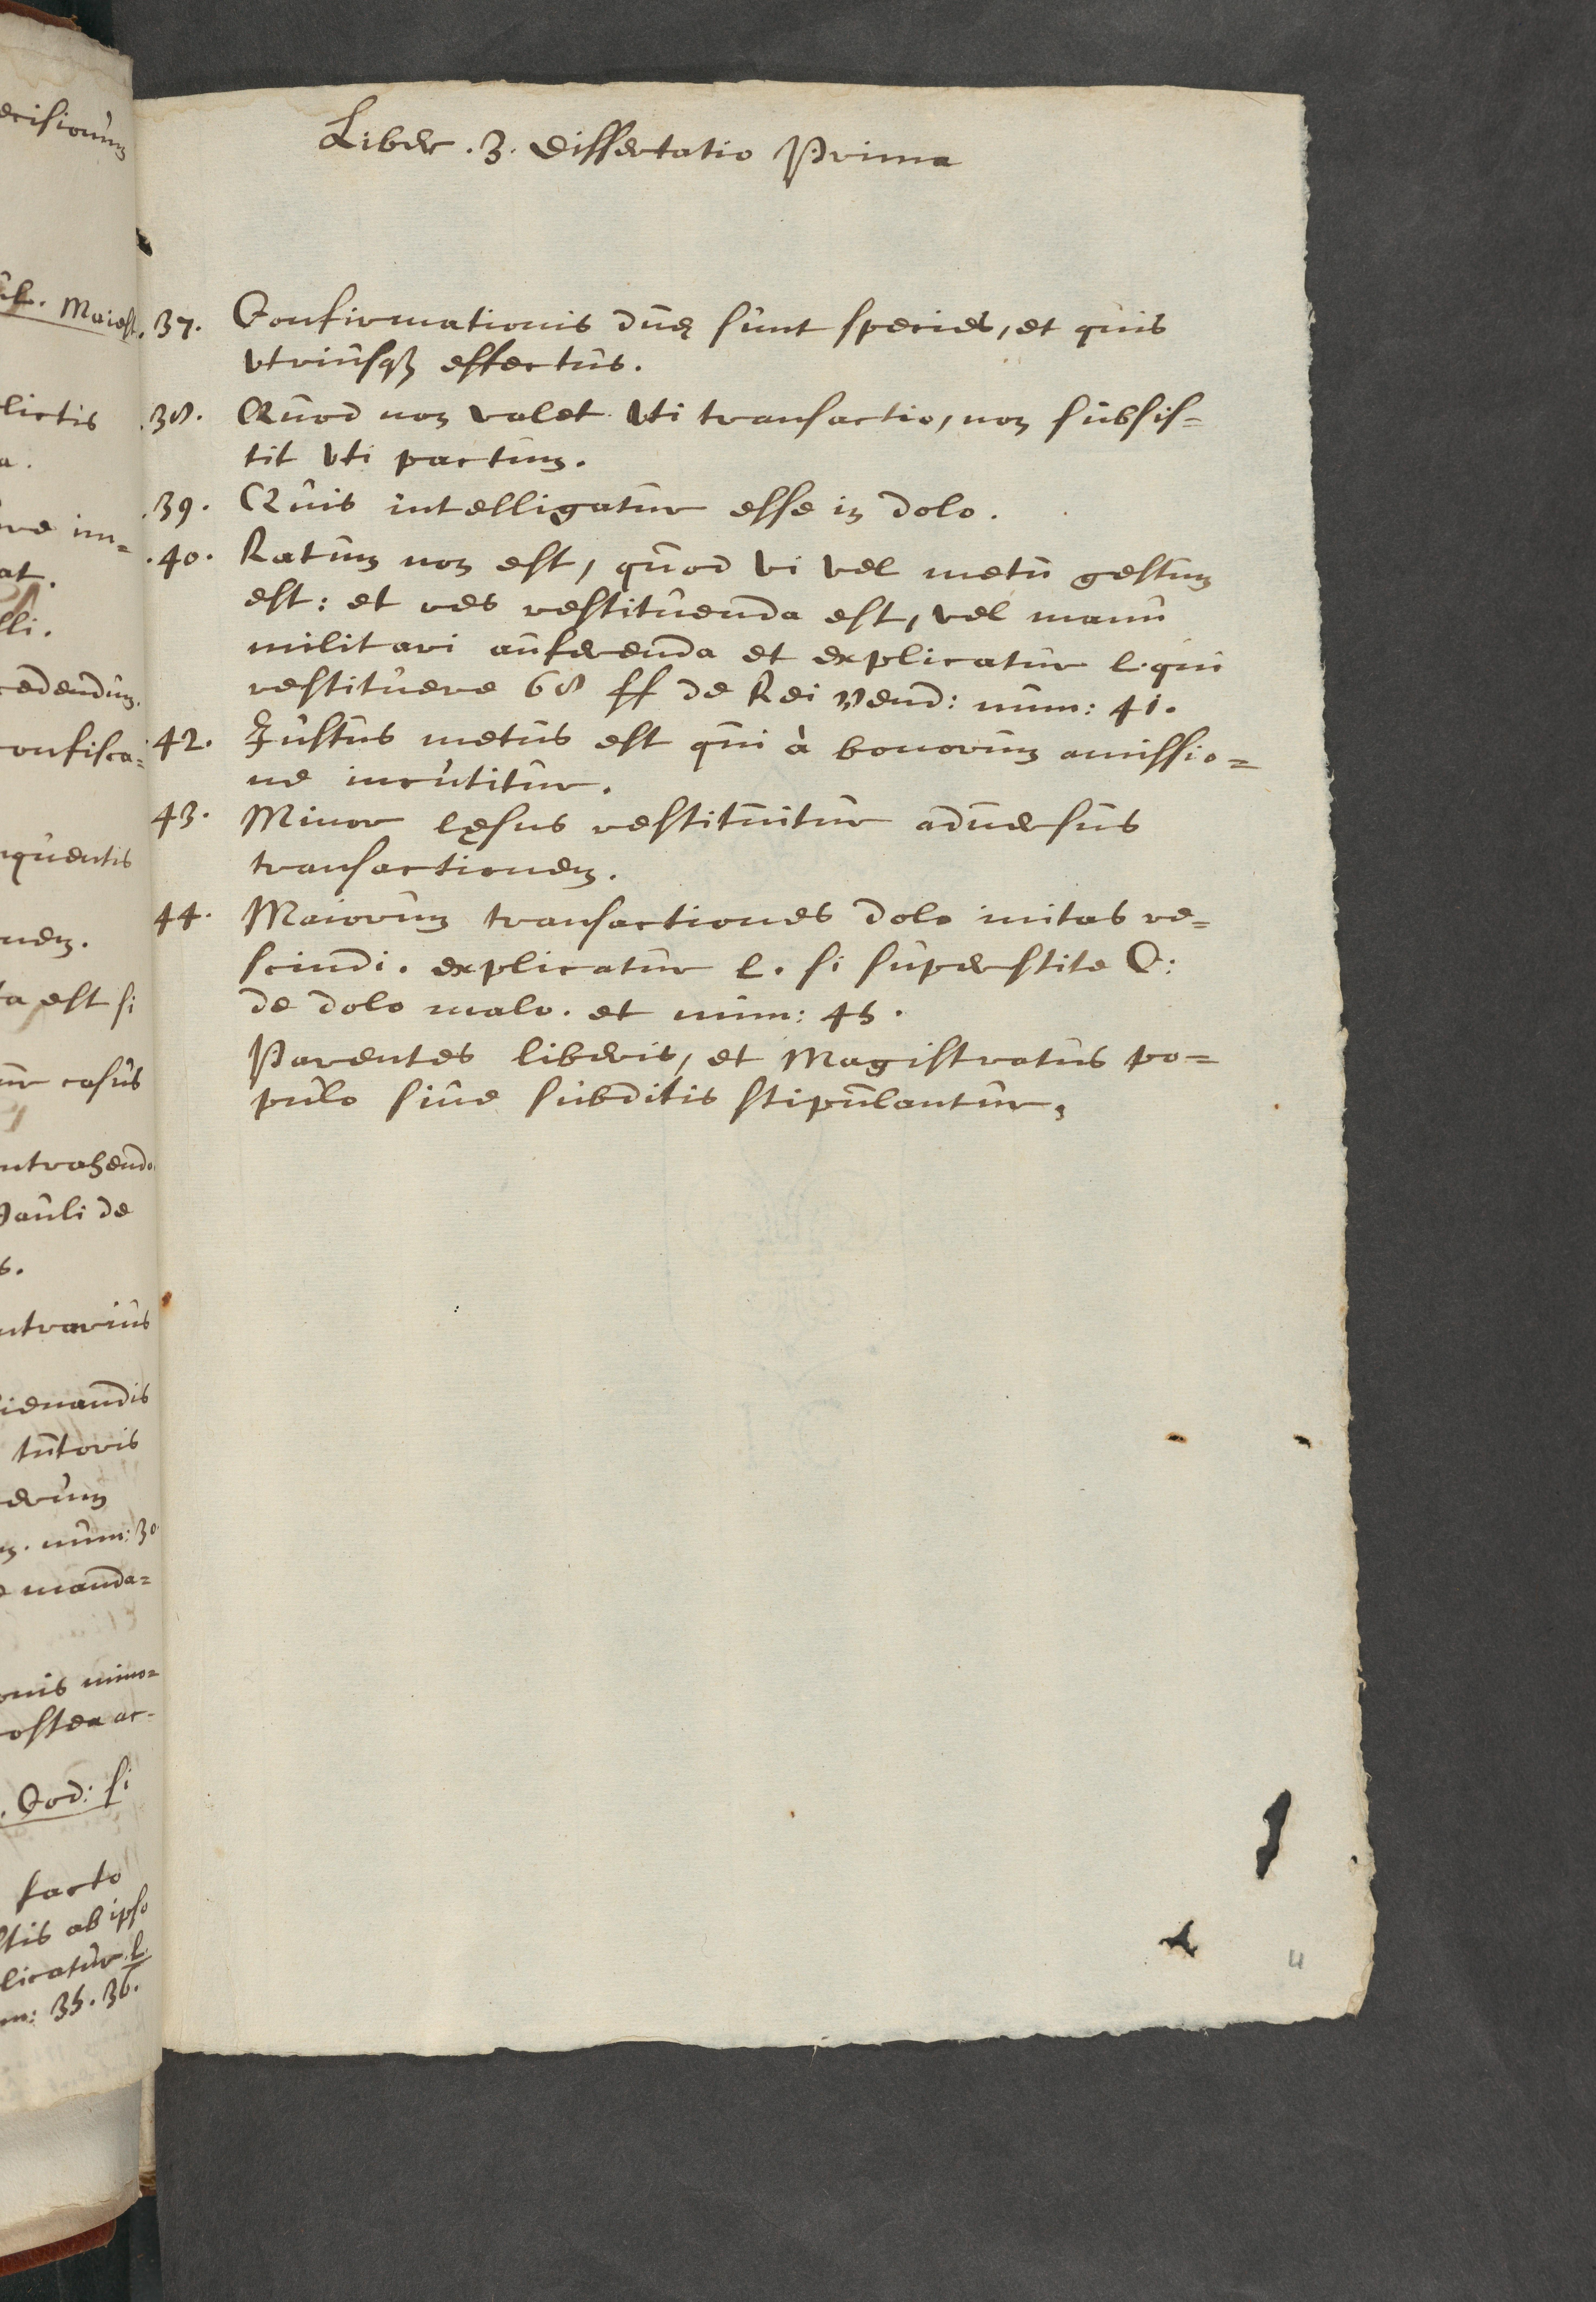 Liber .3. Dissertatio Prima
.37. Confirmationis duę sunt species, et quis
vtriusq₃ effectus.
.38. Quod non valet vti transactio, non subsis=
tit vti pactum.
.39. Quis intelligatur esse in dolo.
.40. Ratum non est, quod vi vel metu gestum
est: et res restituenda est, vel manu
militari auferenda et explicatur l. qui
restituere 68 ff de Rei vend: num: 41.
42. Justus metus est qui à bonorum amissio=
ne incutitur.
43. Minor lęsus restituitur aduersus
transactionem.
44. Maiorum transactiones dolo initas re=
scindi. explicatur l. si superstite C:
de dolo malo. et num: 45.
Parentes liberis, et Magistratus po=
pulo siue subditis stipulantur,
4
ecisionum
Maiest.
lictis
a.
re im=
at.
lli.
cedendum.
confisca=
nquentis
nem.
ta est si
ur casus
ntrahendo
Pauli de
s.
ntrarius
lienandis
tutoris
erum
num: 30
manda=
onis mino=
ostea ac-
Cod: si
facto
ltis ab ipso
licatur l.
m: 35. 36.